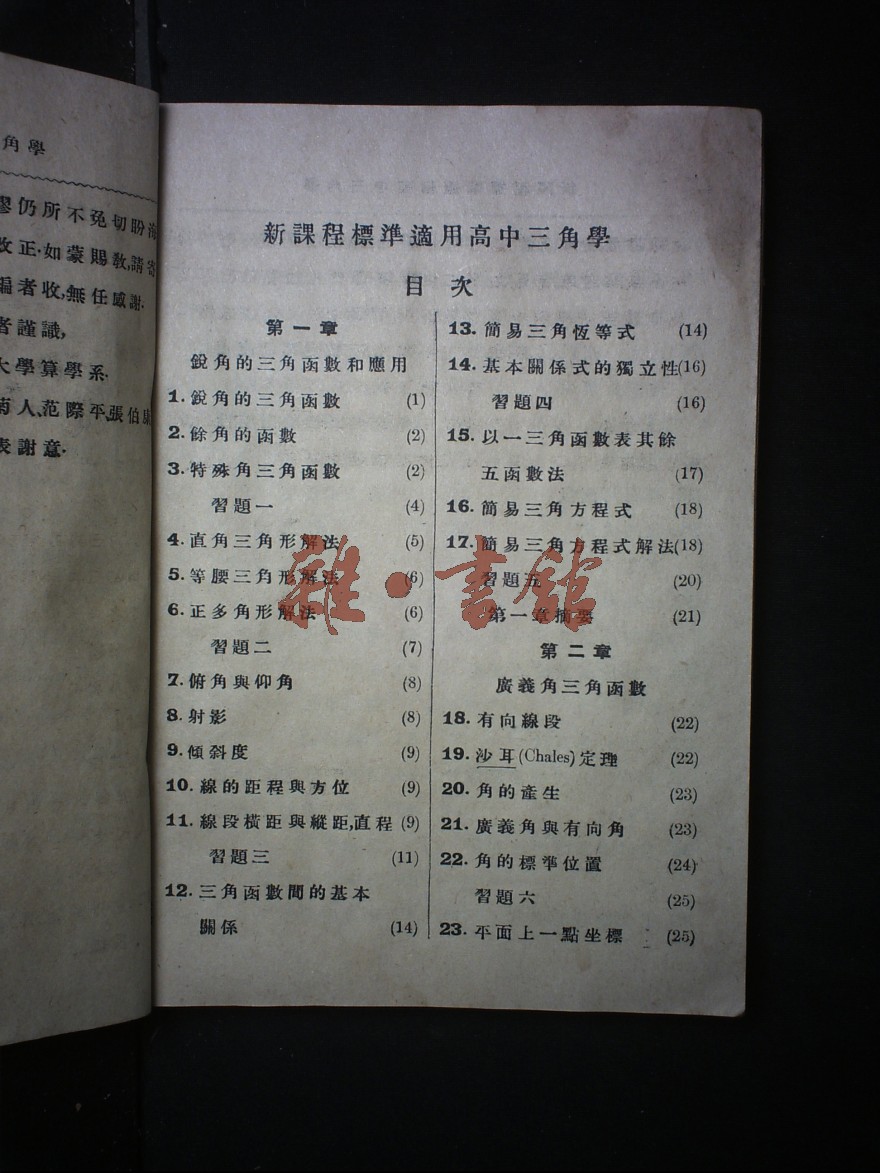 角學
謬仍所不免切盼海
改正·如蒙賜敎,請寄
編者收,無任感謝·
者謹識,
大學算學系·
人、范際平、張伯
表謝意·
新課程標準適用高中三角學
目次
第一章
銳角的三角函數和應用
1.銳角的三角函數 (1)
2.餘角的函數 (2)
3.特殊角三角函數 (2)
習題一 (4)
4.直角三角形解法 (5)
5.等腰三角形解法 (6)
6.正多角形解法 (6)
習題二 (7)
7.俯角與仰角 (8)
8.射影 (8)
9.傾斜度 (9)
10.線的距程與方位 (9)
11.線段橫距與縱距,直程 (9)
習題三 (11)
12.三角函數間的基本
關係 (14)
13.簡易三角恆等式 (14)
14.基本關係式的獨立性(16)
習題四 (16)
15.以一三角函數表其餘
五函數法 (17)
16.簡易三角方程式 (18)
17.簡易三角方程式解法(18)
習題五 (20)
第一章摘要 (21)
第二章
廣義角三角函數
18.有向線段 (22)
19.沙耳(Chales)定理 (22)
20.角的產生 (23)
21.廣義角與有向角 (23)
22.角的標準位置 (24)
習題六 (25)
23.平面上一點坐標 (25)
雜·書館